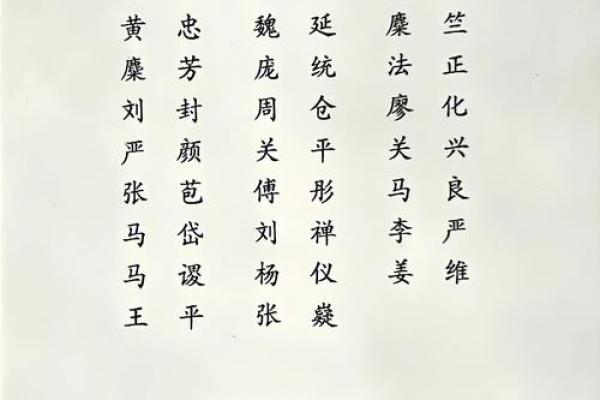 黄忠 魏延 麋竺
麋芳 庞统 法正
刘封 周仓 廖化
严颜 关平 关兴
张苞 傅彤 马良
马岱 刘禅 李严
马谡 杨仪 姜维
王平 张嶷